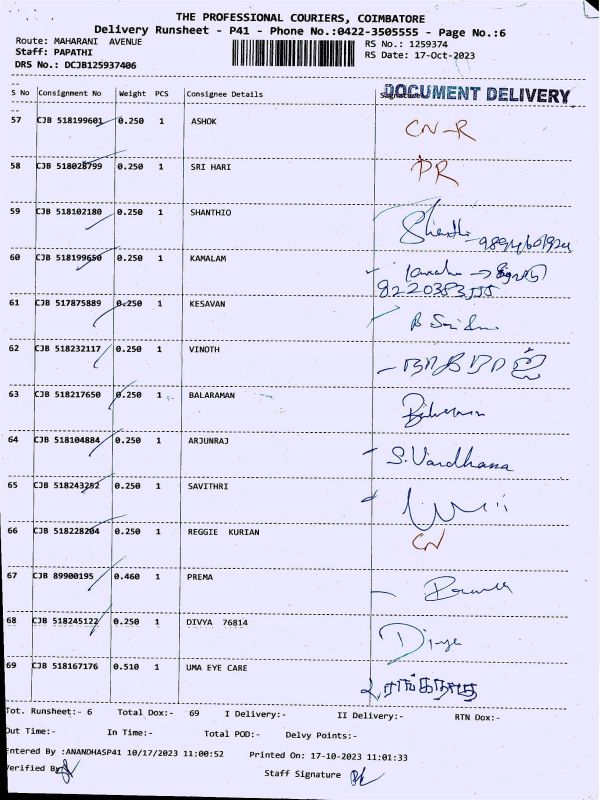 THE PROFESSIONAL COURIERS, COIMBATORE
Delivery Runsheet - P41 - Phone No.:0422-3505555 - Page No.:6
Route: MAHARANI AVENUE RS No.: 1259374
Staff: PAPATHI RS Date: 17-Oct-2023
DRS No.: DCJB125937406
S No Consignment No Weight PCS Consignee Details Signature DOCUMENT DELIVERY
57 CJB 518199601 0.250 1 ASHOK CN-R
58 CJB 518028799 0.250 1 SRI HARI PR
59 CJB 518102180 0.250 1 SHANTHIO Shanthi
60 CJB 518199650 0.250 1 KAMALAM
8220383555
61 CJB 517875889 0.250 1 KESAVAN
62 CJB 518232117 0.250 1 VINOTH
63 CJB 518217650 0.250 1 BALARAMAN
64 CJB 518104884 0.250 1 ARJUNRAJ S.Vardhana
65 CJB 518243252 0.250 1 SAVITHRI
66 CJB 518228204 0.250 1 REGGIE KURIAN CN
67 CJB 89900195 0.460 1 PREMA
68 CJB 518245122 0.250 1 DIVYA 76814 Divya
69 CJB 518167176 0.510 1 UMA EYE CARE
Tot. Runsheet:- 6 Total Dox:- 69 I Delivery:- II Delivery:- RTN Dox:-
Out Time:- In Time:- Total POD:- Delvy Points:-
Entered By :ANANDHASP41 10/17/2023 11:00:52 Printed On: 17-10-2023 11:01:33
Verified By Staff Signature